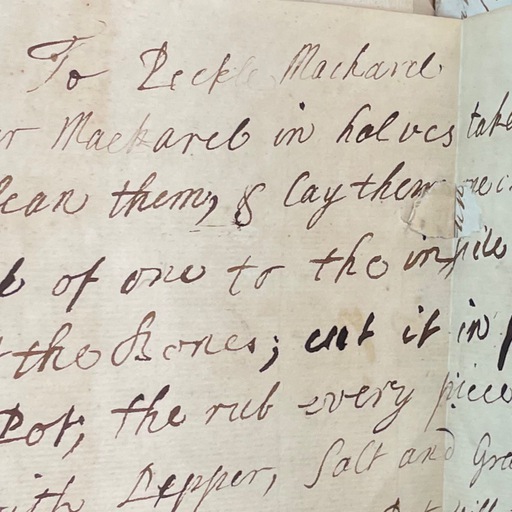 To Peckle Mackarel
Mackarel in halves take
clean them, & Lay them
of one to the inside
the Bones; cut it in
Pot; the rub every piece
with Pepper, Salt and